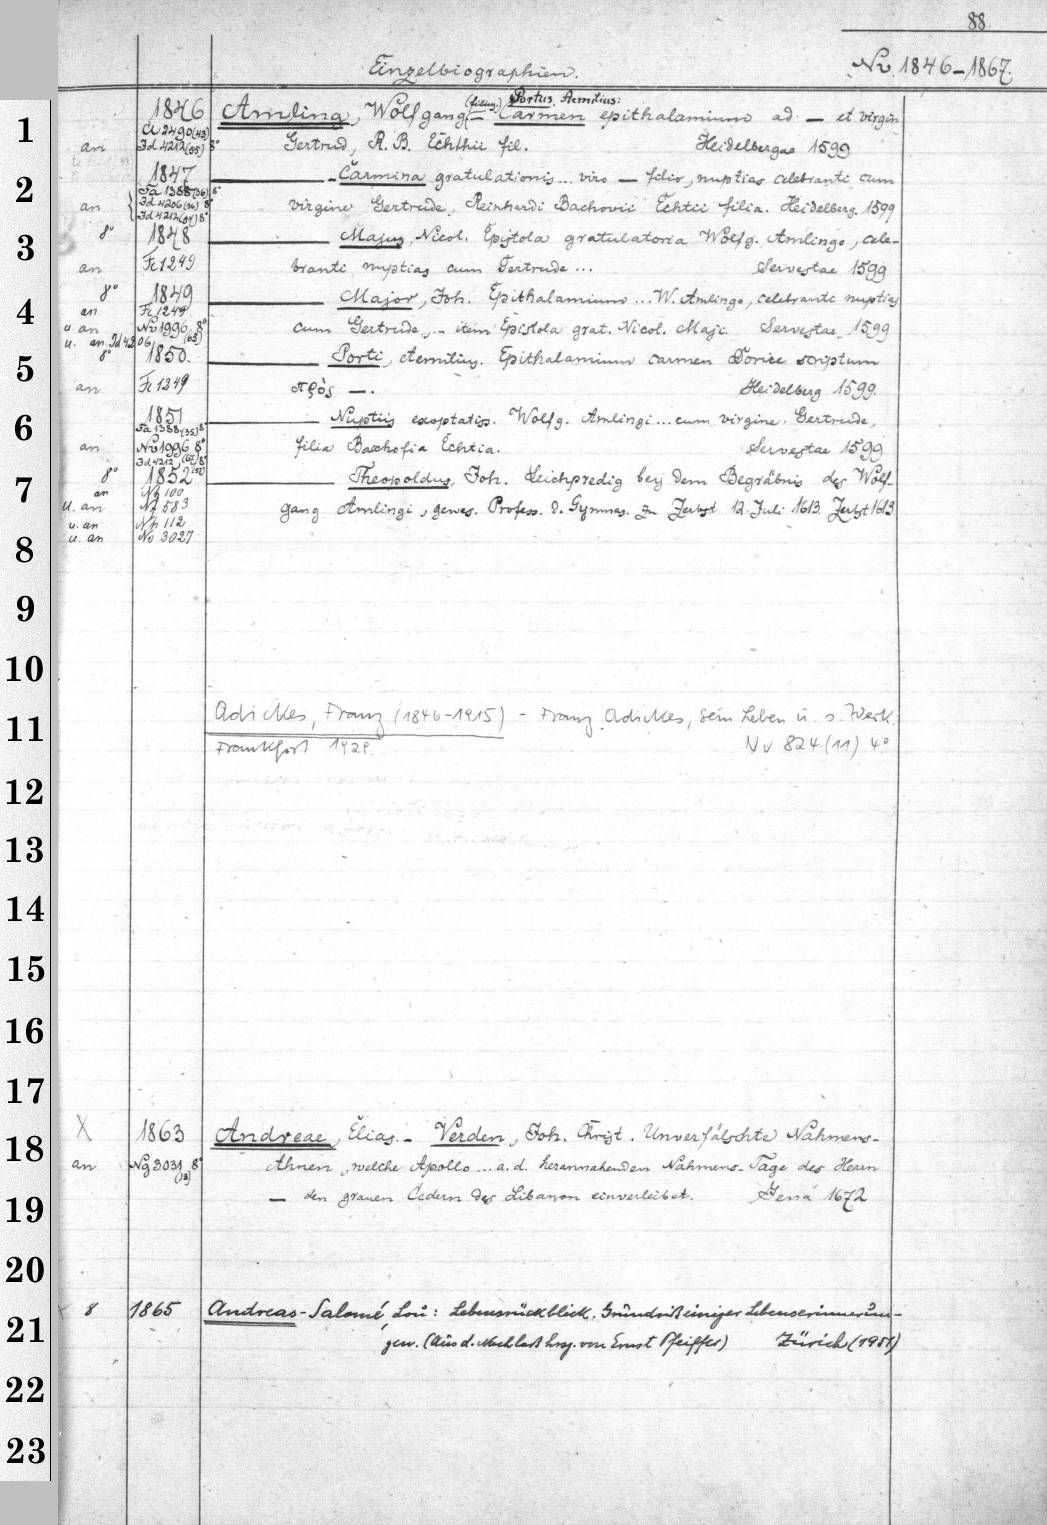 88
Einzelbiographien.
Nv 1846-1867.
1 1846 Amling, Wolfgang (filius) – Portus, Aemilius: Carmen epithalamium ad – et virgin
Cl 2490(43)
an Id 4212(55) 8° Gertrud, R. B. Echthii fil. Heidelbergae 1599
2 1847 – Carmina gratulationis... viro – filio, nuptias celebranti cum
Ta 1388(36) 8°
an Id 4206(36) 8° virgine Gertrude, Reinhardi Bachovii Echtii filia. Heidelberg 1599
Id 4212(54) 8°
3 8° 1848 Majus, Nicol. Epistola gratulatoria Wolfg. Amlingo, cele-
an Fc 1249 branti nuptias cum Gertrude... Servestae 1599
4 8° 1849 Major, Joh. Epithalamium... W. Amlingo, celebranti nuptias
an Fc 1249
u. an Nv 1996 8° cum Gertrude,.. item Epistola grat. Nicol. Maji. Servestae 1599
u. an Id 4206
5 8° 1850. Porti, Aemilius. Epithalamium carmen Dorice scriptum
an Fc 1249 πρὸς –. Heidelberg 1599.
6 1851 Nuptiis exoptatiss. Wolfg. Amlingi... cum virgine. Gertrude,
Ta 1388(35) 8°
an Nv 1996 8° filia Bachofia Echtia. Servestae 1599
Id 4212 8°
7 8° 1852 Theopoldus, Joh. Leichpredig beij dem Begräbnis des Wolf-
an 100
u. an 583 gang Amlingi, gewes. Profess. d. Gymnas. zu Zerbst 12. Juli 1613. Zerbst 1613
u. an 112
8 u. an Nv 3027
9
10
11 Adickes, Franz (1846-1915) - Franz Adickes, sein Leben u. s. Werk.
Frankfurt 1929. Nv 824(11) 4°
12
13
14
15
16
17
18 X 1863 Andreae, Elias. – Verden, Joh. Christ. Unverfälschte Nahmens-
an Ng 3031 8° (13) Ahnen, welche Apollo... a. d. herannahenden Nahmens-Tage des Herrn
19 – den grauen Cedern des Libanon einverleibet. Jena 1672
20
21 8 1865 Andreas-Salomé, Lou: Lebensrückblick. Grundriß einiger Lebenserinnerun-
gen. (Aus d. Nachlaß hrsg. von Ernst Pfeiffer) Zürich (1951)
22
23